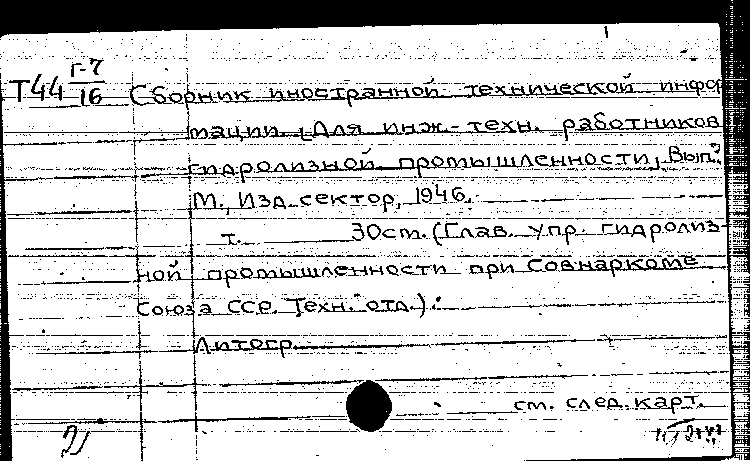 Т44 Г-7/16 Сборник иностранной технической инфор
мации. (Для инж.-техн. работников
гидролизной промышленности, Вып.
М., Изд. сектор, 1946.
т. 30см. (Глав. упр. гидролиз-
ной промышленности при Совнаркоме
Союза ССР. Техн. отд.).
Литогр.
см. след. карт.